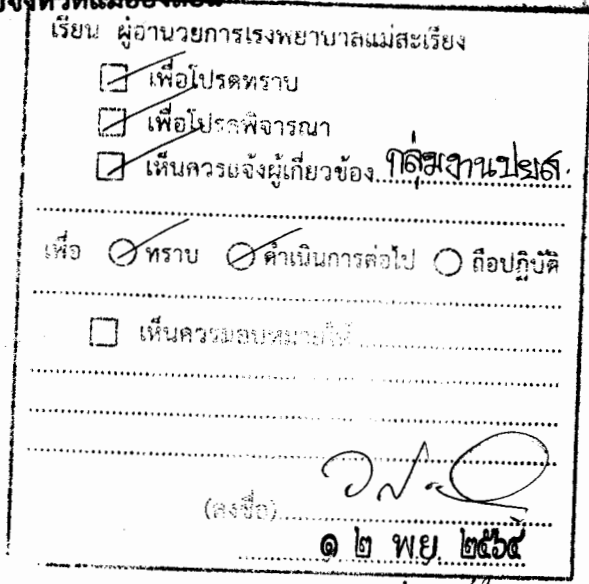 เรียน ผู้อำนวยการโรงพยาบาลแม่สะเรียง
เพื่อโปรดทราบ
เพื่อโปรดพิจารณา
เห็นควรแจ้งผู้เกี่ยวข้อง กลุ่มงานปยส.
เพื่อ ทราบ ดำเนินการต่อไป ถือปฏิบัติ
เห็นควรมอบหมายให้
(ลงชื่อ)
๑ ๒ พ.ย. ๒๕๖๔